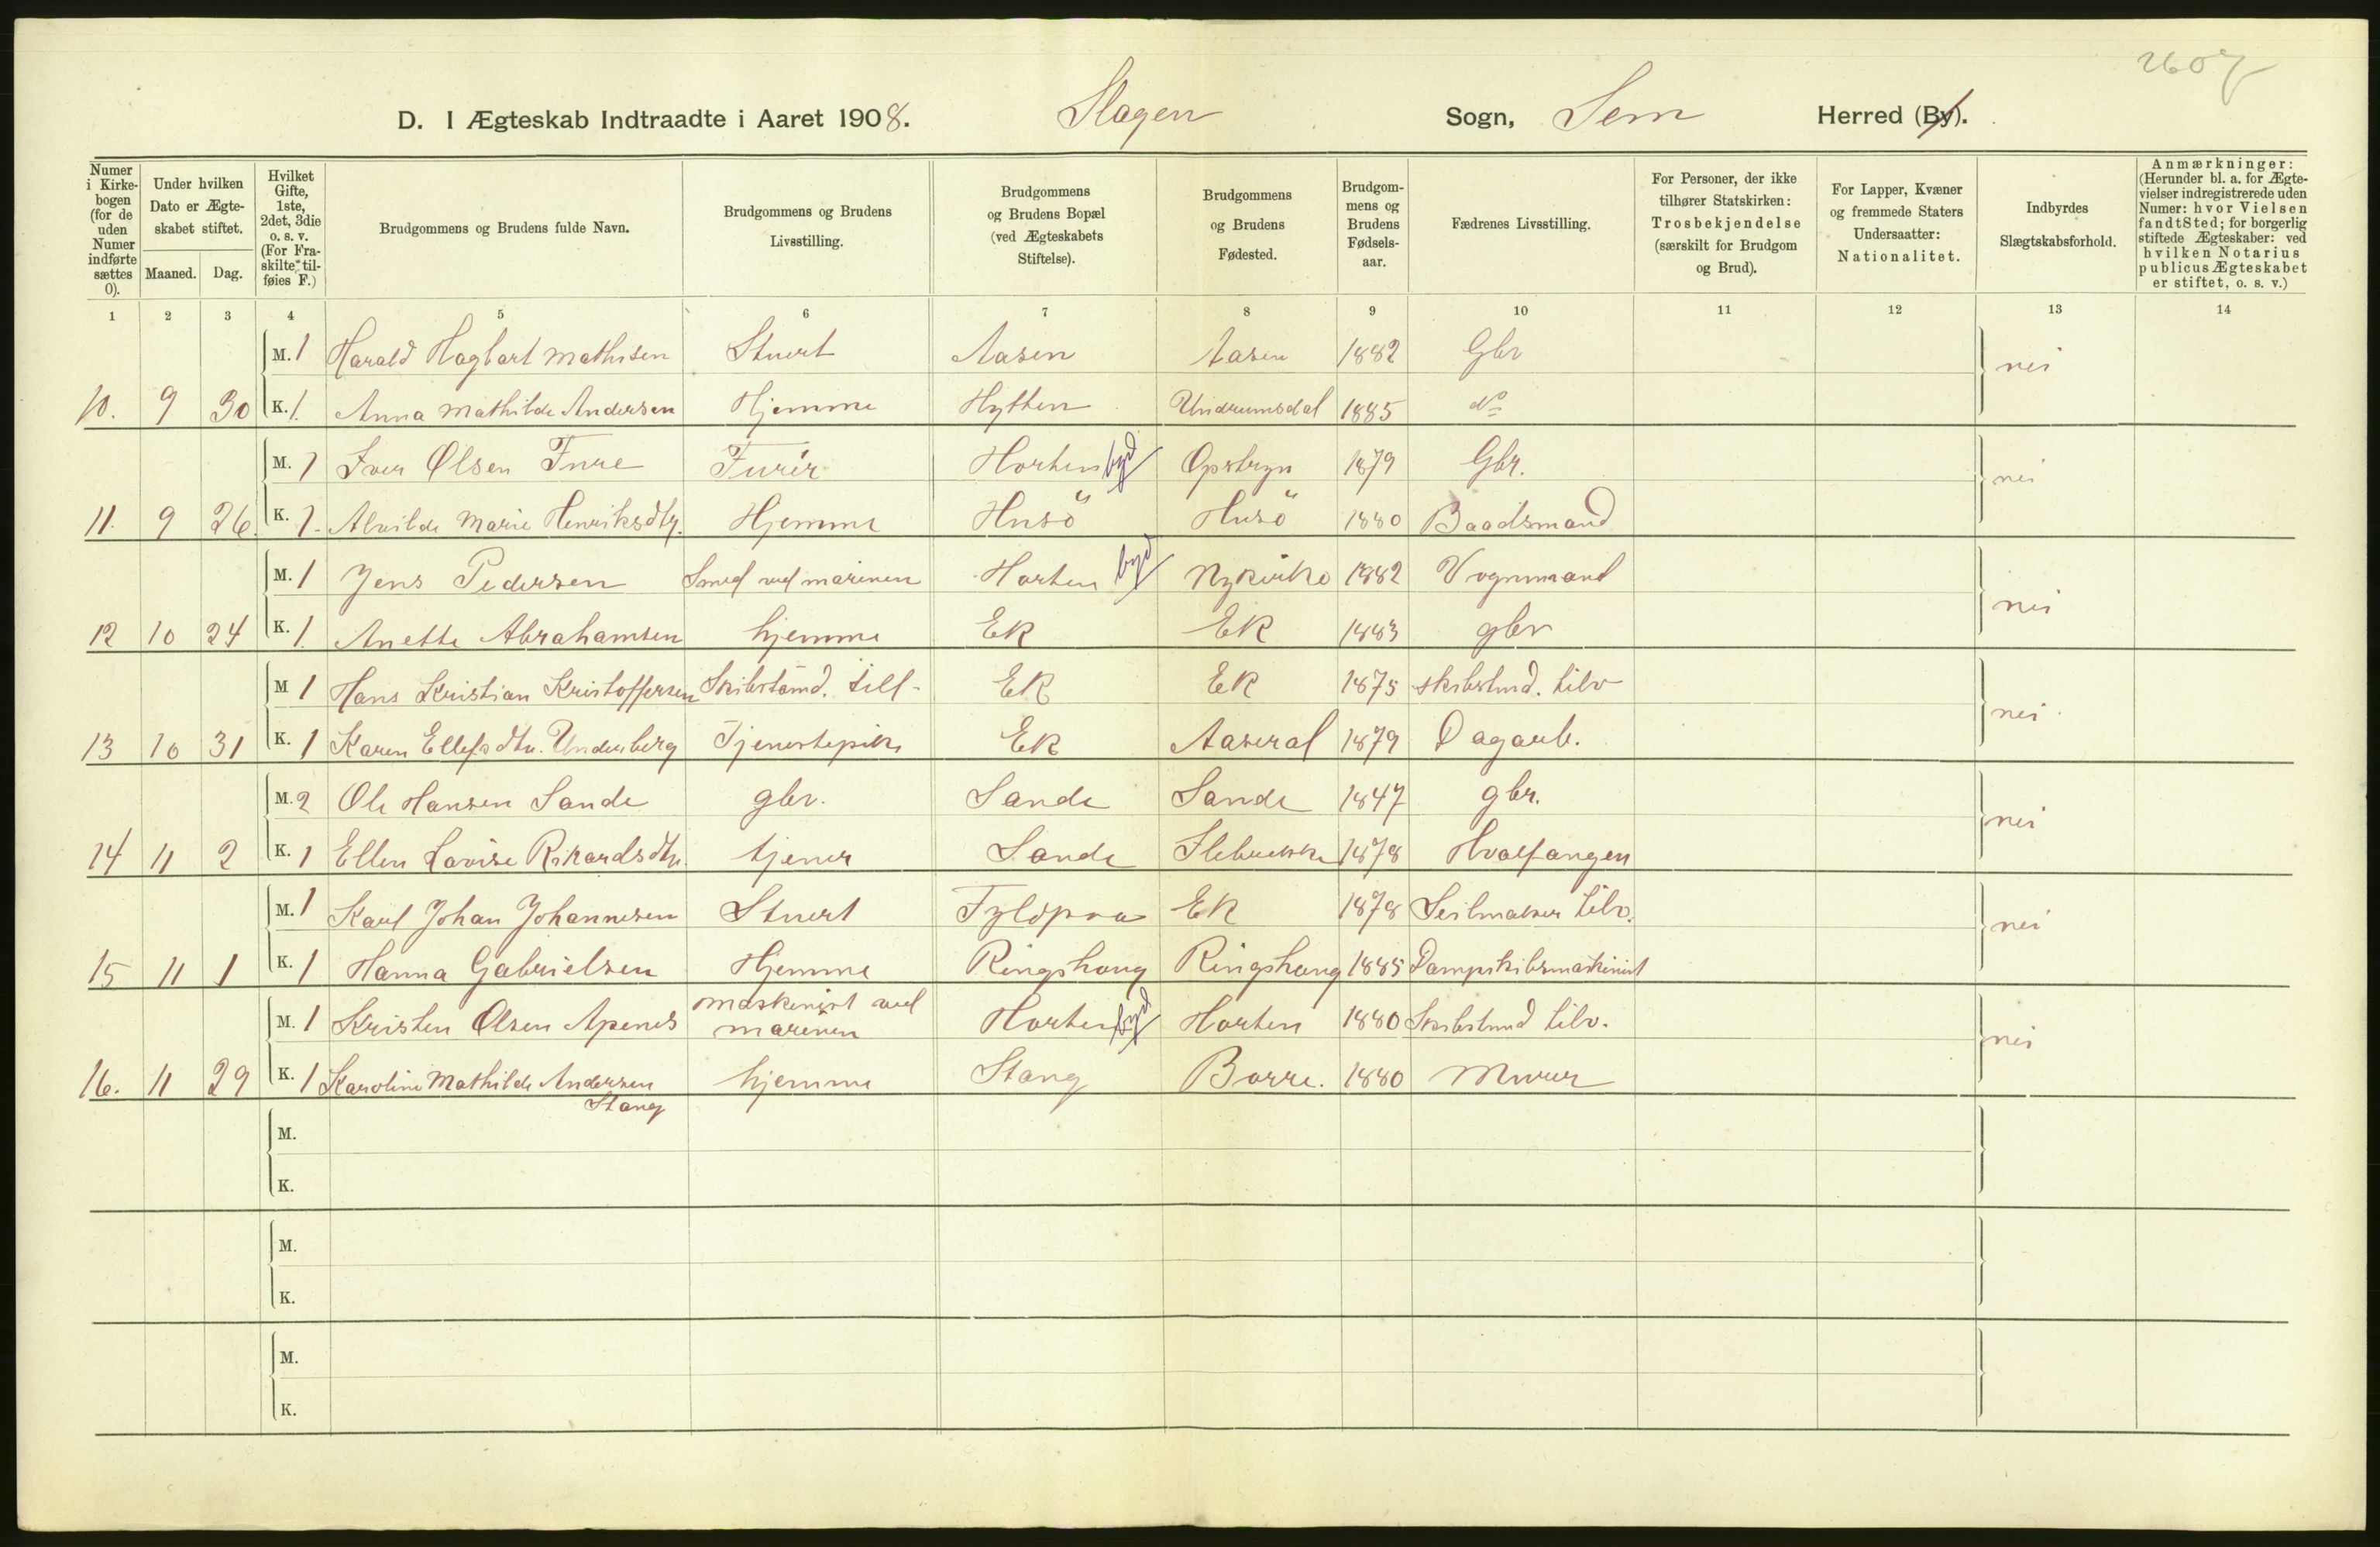 2607
D. I Ægteskab Indtraadte i Aaret 1908. Slagen Sogn, Sem Herred (By).
Numer i Kirke-bogen (for de uden Numer indførte sættes 0).
Under hvilken Dato er Ægte-skabet stiftet.
Maaned. Dag.
Hvilket Gifte, 1ste, 2det, 3die o. s. v. (For Fra-skilte tilføies F.)
Brudgommens og Brudens fulde Navn.
Brudgommens og Brudens Livsstilling.
Brudgommens og Brudens Bopæl (ved Ægteskabets Stiftelse).
Brudgommens og Brudens Fødested.
Brudgom-mens og Brudens Fødsels-aar.
Fædrenes Livsstilling.
For Personer, der ikke tilhører Statskirken: Trosbekjendelse (særskilt for Brudgom og Brud).
For Lapper, Kvæner og fremmede Staters Undersaatter: Nationalitet.
Indbyrdes Slægtskabsforhold.
Anmærkninger: (Herunder bl. a. for Ægte-vielser indregistrerede uden Numer: hvor Vielsen fandt Sted; for borgerlig stiftede Ægteskaber: ved hvilken Notarius publicus Ægteskabet er stiftet, o. s. v.)
1 2 3 4 5 6 7 8 9 10 11 12 13 14
M. 1 Harald Hagbart Mathisen Stuert Aasen Aasen 1882 Gbr nei
10. 9 30 K. 1. Anna Mathilde Andersen Hjemme Hytten Undrumsdal 1885 do
M. 1 Iver Olsen Fure Furér Horten byd Opstryn 1879 Gbr. nei
11. 9 26. K. 1. Alvilde Marie Henriksdtr. Hjemme Husö Husö 1880 Baadsmand
M. 1 Jens Pedersen Smed ved marinen Horten byd Nykirke 1882 Vognmand nei
12 10 24 K. 1. Anette Abrahamsen hjemme Ek Ek 1883 gbr
M 1 Hans Kristian Kristoffersen Skibstømd. Ek Ek 1875 skibstmd. nei.
13 10 31 K. 1 Karen Ellefsdtr. Underberg Tjenestepike Ek Aaseral 1879 Dagarb.
M. 2 Ole Hansen Sande gbr. Sande Sande 1847 gbr. nei
14 11 2 K. 1 Ellen Lovise Rikardsdtr. tjener Sande 1878 Hvalfangen
M. 1 Karl Johan Johannesen Stuert Fyldpaa Ek 1878 Seilmaker nei
15 11 1 K. 1 Hanna Gabrielsen Hjemme Ringshaug Ringshaug 1885 Dampskibsmaskinist
M. 1 Kristen Olsen Apenes maskinist ved marinen Horten byd Horten 1880 Skibstmd nei
16. 11 29 K. 1 Karoline Mathilde Andersen Stang hjemme Stang Borre. 1880 Murer
M.
K.
M.
K.
M.
K.